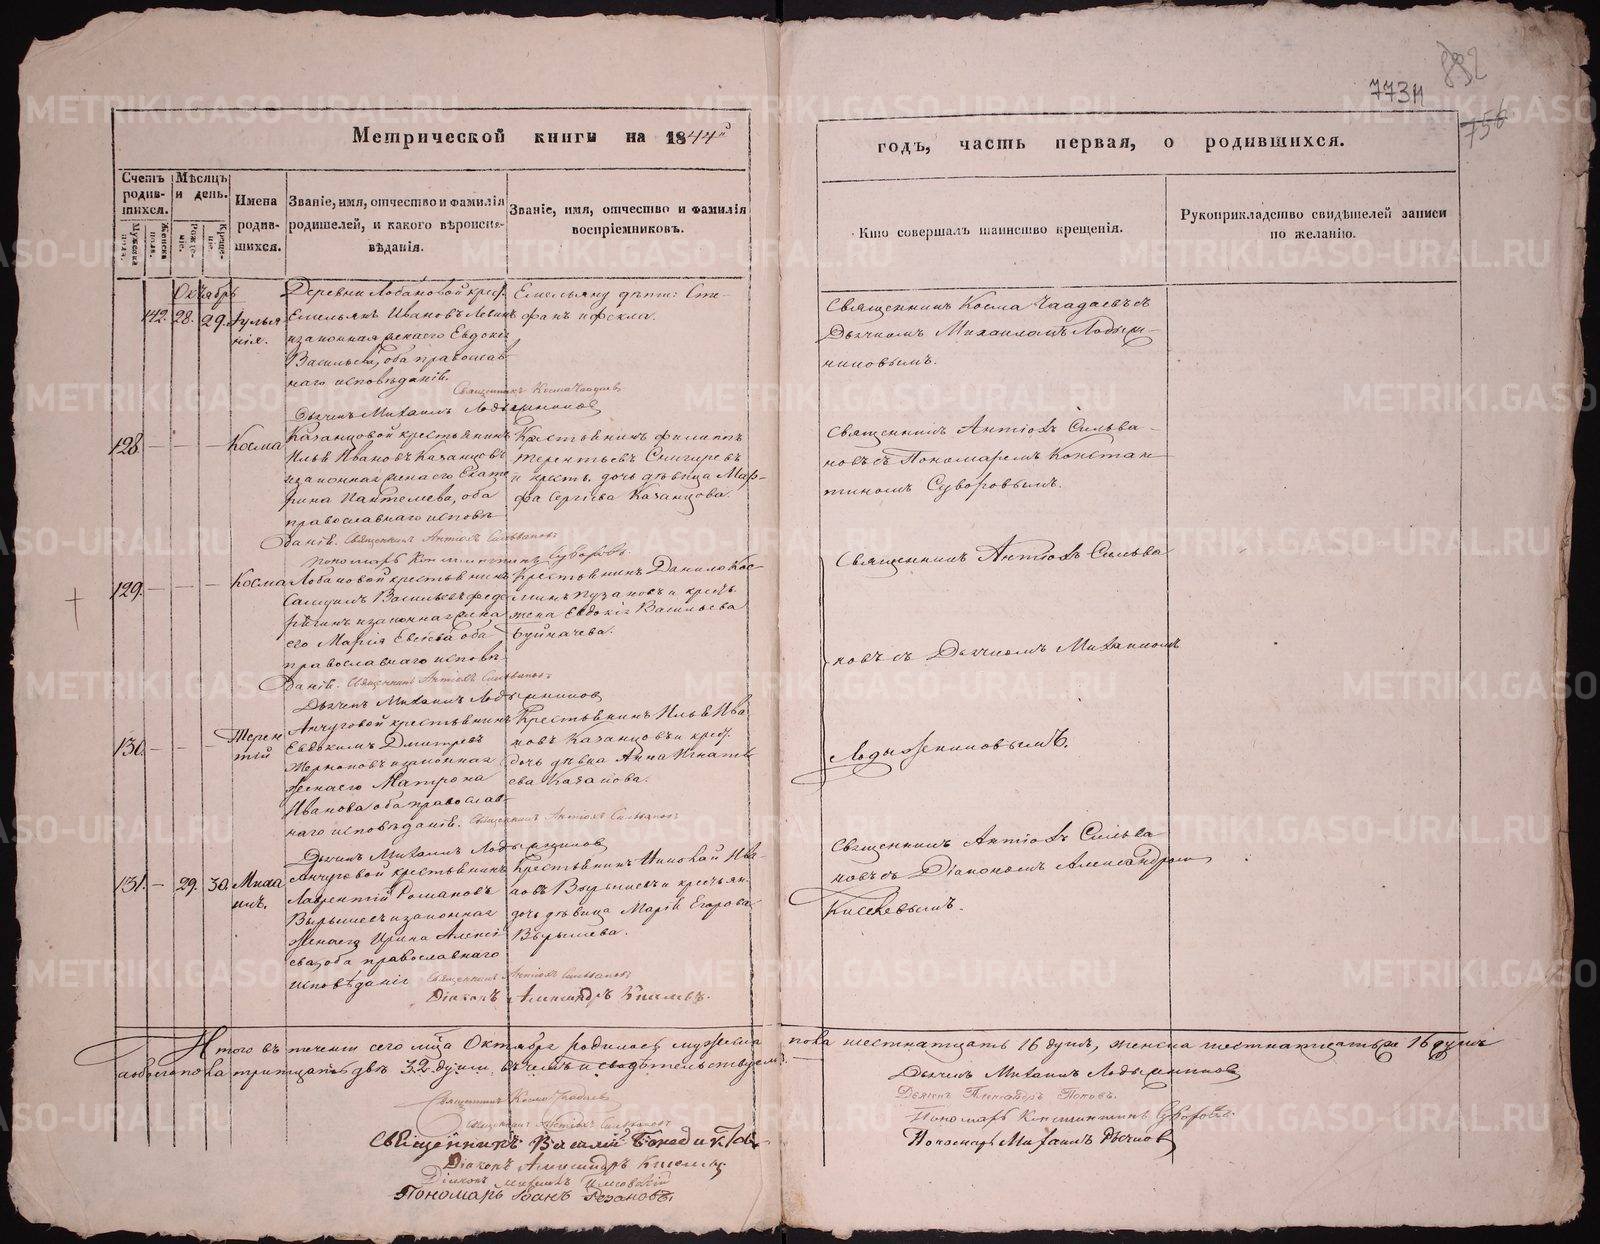 773 н
892
756
Метрической книги на 1844й
годъ, часть первая, о родившихся.
Счетъ родив-шихся.
Мужеска пола.
Женска пола.
Мѣсяцъ и день.
Рожде-нія.
Креще-нія.
Имена родив-шихся.
Званіе, имя, отчество и фамилія
родителей, и какого вѣроиспо-
вѣданія.
Званіе, имя, отчество и фамилія
воспріемниковъ.
Кто совершалъ таинство крещенія.
Рукоприкладство свидѣтелей записи
по желанію.
Октябрь
142. 28. 29. Іулья
нія.
Деревни Лобановой крес.
Емельянъ Ивановъ
изаконная женаего Евдокія
Васильева, оба православ
наго исповѣданія.
Священникъ Косма Чаадаевъ
Дьячекъ Михаилъ Лодыжниковъ
Емельяну дѣти: Сте-
фанъ и Фекла.
Священникъ Косма Чаадаевъ съ
Дьячкомъ Михаиломъ Лодыж-
никовымъ.
128. — — — Косма
Казанцовой крестьянинъ
Илья Ивановъ Казанцовъ
изаконная жена его Екате
рина Пантелева, оба
православнаго исповѣ
данія. Священникъ Антіохъ Сильвановъ
пономарь Константинъ Суворовъ.
Крестьянинъ Филиппъ
Терентьевъ Снигиревъ
и крестъ. дочь дѣвица Мар-
фа Сергіева Казанцова.
Священникъ Антіохъ Сильва-
новъ съ Пономаремъ Констан
тиномъ Суворовымъ.
129. — — — Косма
Лобановой крестьянинъ
Самуилъ Васильевъ
изаконная жена
его Марія оба
православнаго исповѣ
данія. Священникъ Антіохъ Сильвановъ
Дьячекъ Михаилъ Лодыжниковъ
Крестьянинъ Данило Кос-
минъ Пузановъ и крестъ.
жена Евдокія Васильева
Буйначева.
Священникъ Антіохъ Сильва
новъ съ Дьячкомъ Михаиломъ
Лодыжениковымъ.
130. — — — Терен
тій
Анчуговой крестьянинъ
Евдокимъ Дмитревъ
изаконная
женаего Матрона
Иванова оба православ-
наго исповѣданія. Священникъ Антіохъ Сильвановъ
Дьячекъ Михаилъ Лодыжниковъ
Крестьянинъ Илья Ива
новъ Казанцовъ и крес.
дочь дѣвка Анна Игнать
ева Казанова.
131. — 29. 30. Миха
илъ.
Анчуговой крестьянинъ
Лаврентій Романовъ
Вырышевъ изаконная
женаего Ирина Алексі
ева, оба православнаго
исповѣданія Священникъ Антіохъ Сильвановъ
Діаконъ Александръ Киселевъ.
Крестьянинъ Николай Ива-
новъ Вырышевъ и крестьян.
дочь дѣвица Марія Егорова
Вырышева.
Священникъ Антіохъ Сильва
новъ съ Діакономъ Александромъ
Киселевымъ.
Итого въ теченіи сего мца Октября родилось мужеска пола шестнатцать 16 душъ, женска шестнатцать 16 душъ
а обоего пола тритцать двѣ 32 души, въ чемъ и свидѣтельствуемъ:
Священникъ Косма Чаадаевъ
Священникъ Антіохъ Сильвановъ
Священникъ Василій
Діаконъ Александръ Киселевъ
Пономарь Іоанъ Резановъ.
Дьячекъ Михаилъ Лодыжниковъ
Дьячекъ Поповъ.
Пономарь Константинъ Суворовъ.
Пономарь Михаилъ